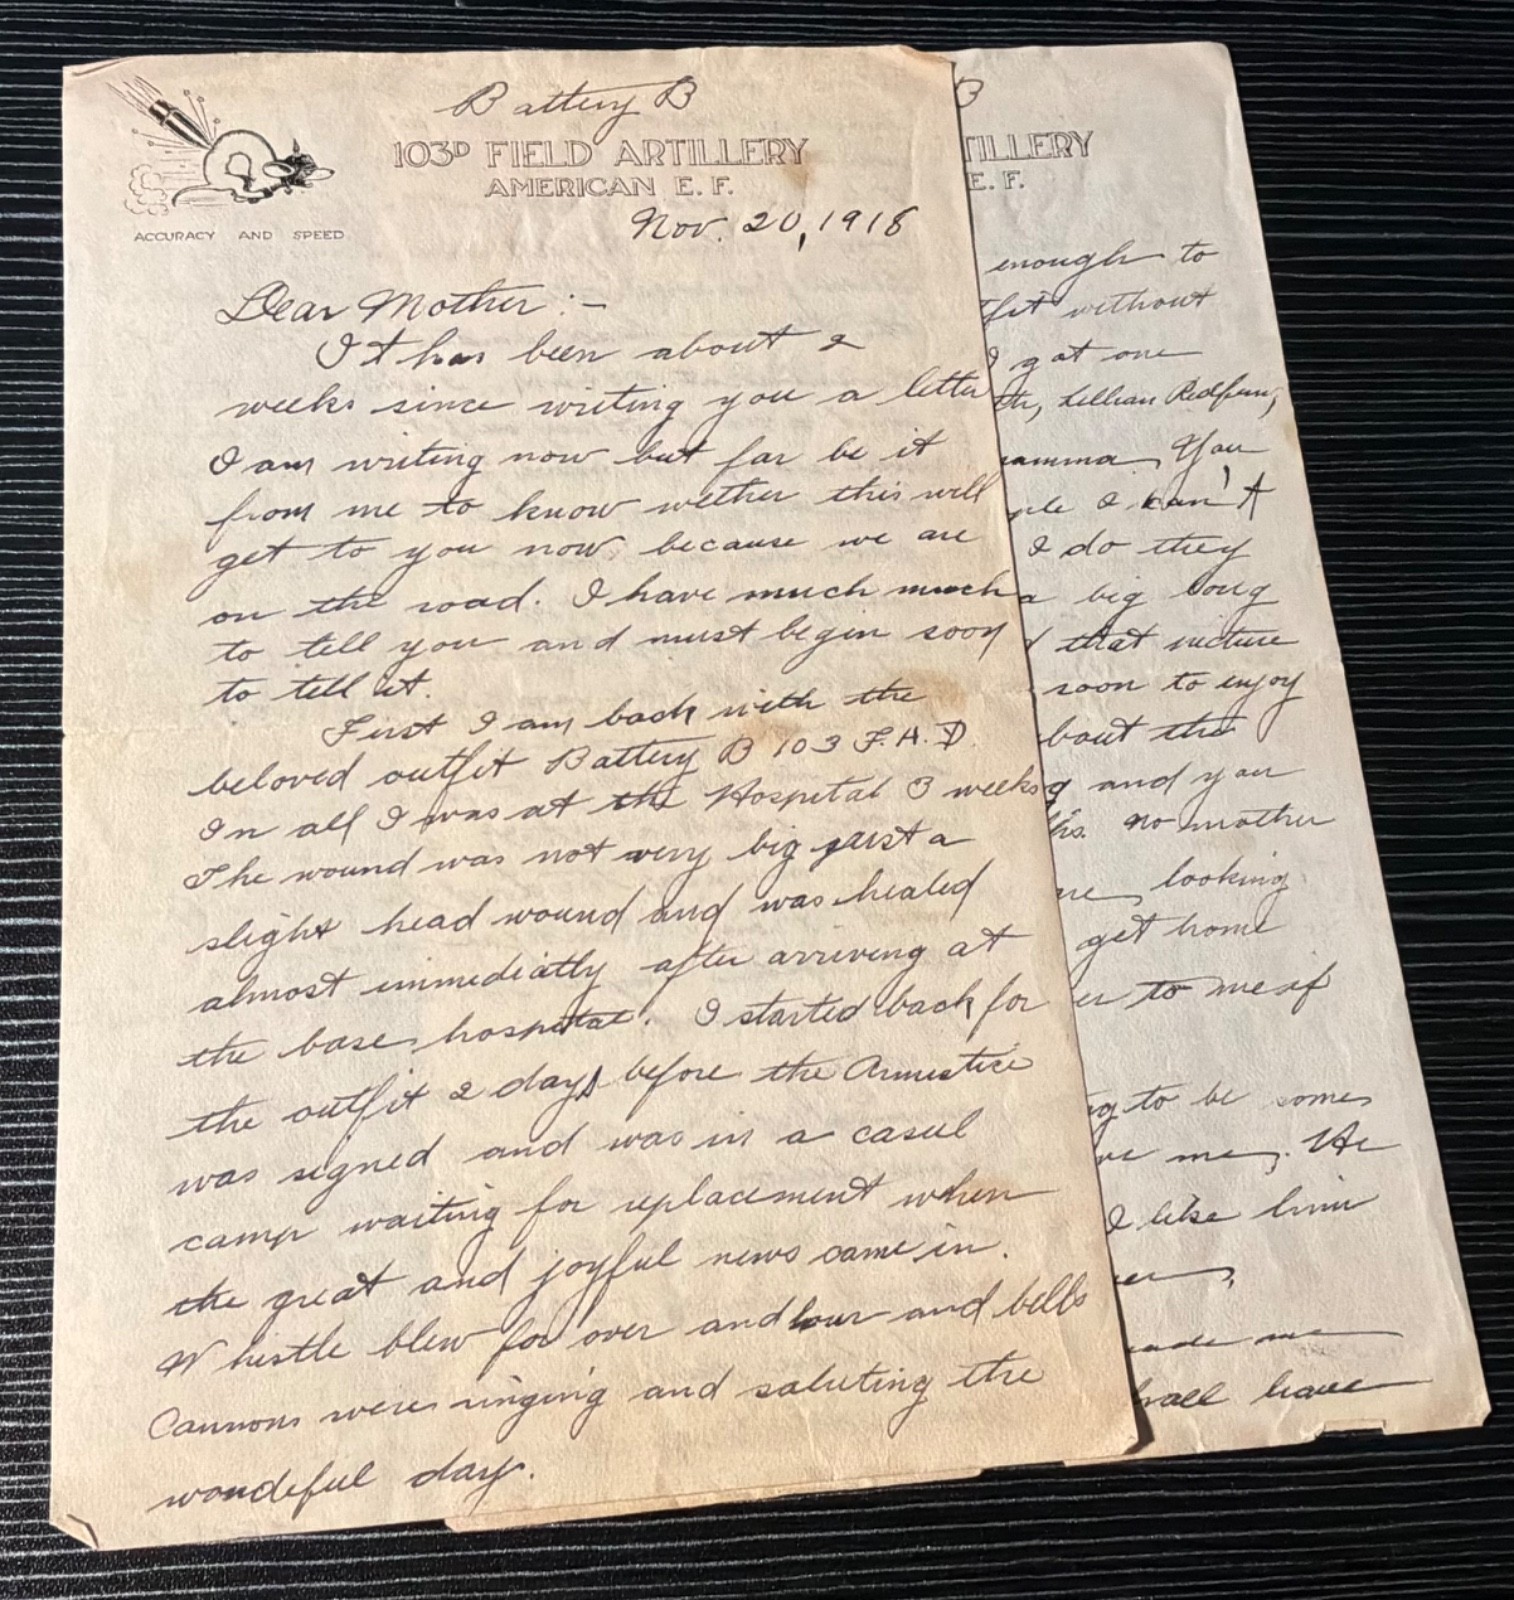 Battery B
103D FIELD ARTILLERY
AMERICAN E. F.
ACCURACY AND SPEED
Nov. 20, 1918
Dear Mother :-
It has been about 2
weeks since writing you a letter
I am writing now but far be it
from me to know wether this will
get to you now, because we are
on the road. I have much much
to tell you and must begin soon
to tell it.
First I am back with the
beloved outfit Battery B 103 F.A.
In all I was at the Hospital 3 weeks
The wound was not very big just a
slight head wound and was healed
almost immediatly after arriving at
the base hospital. I started back for
the outfit 2 days before the Armistice
was signed and was in a casul
camp waiting for replacement when
the great and joyful news came in.
Whistle blew for over and hour and bells
Cannons were ringing and saluting the
wondeful day.
B
TILLERY
E. F.
enough to
without
I got one
Lillian Redfern,
You
I can't
I do they
a big long
that
soon to enjoy
bout the
and you
no mother
looking
get home
to me if
to be some
me. He
I like him
me
have